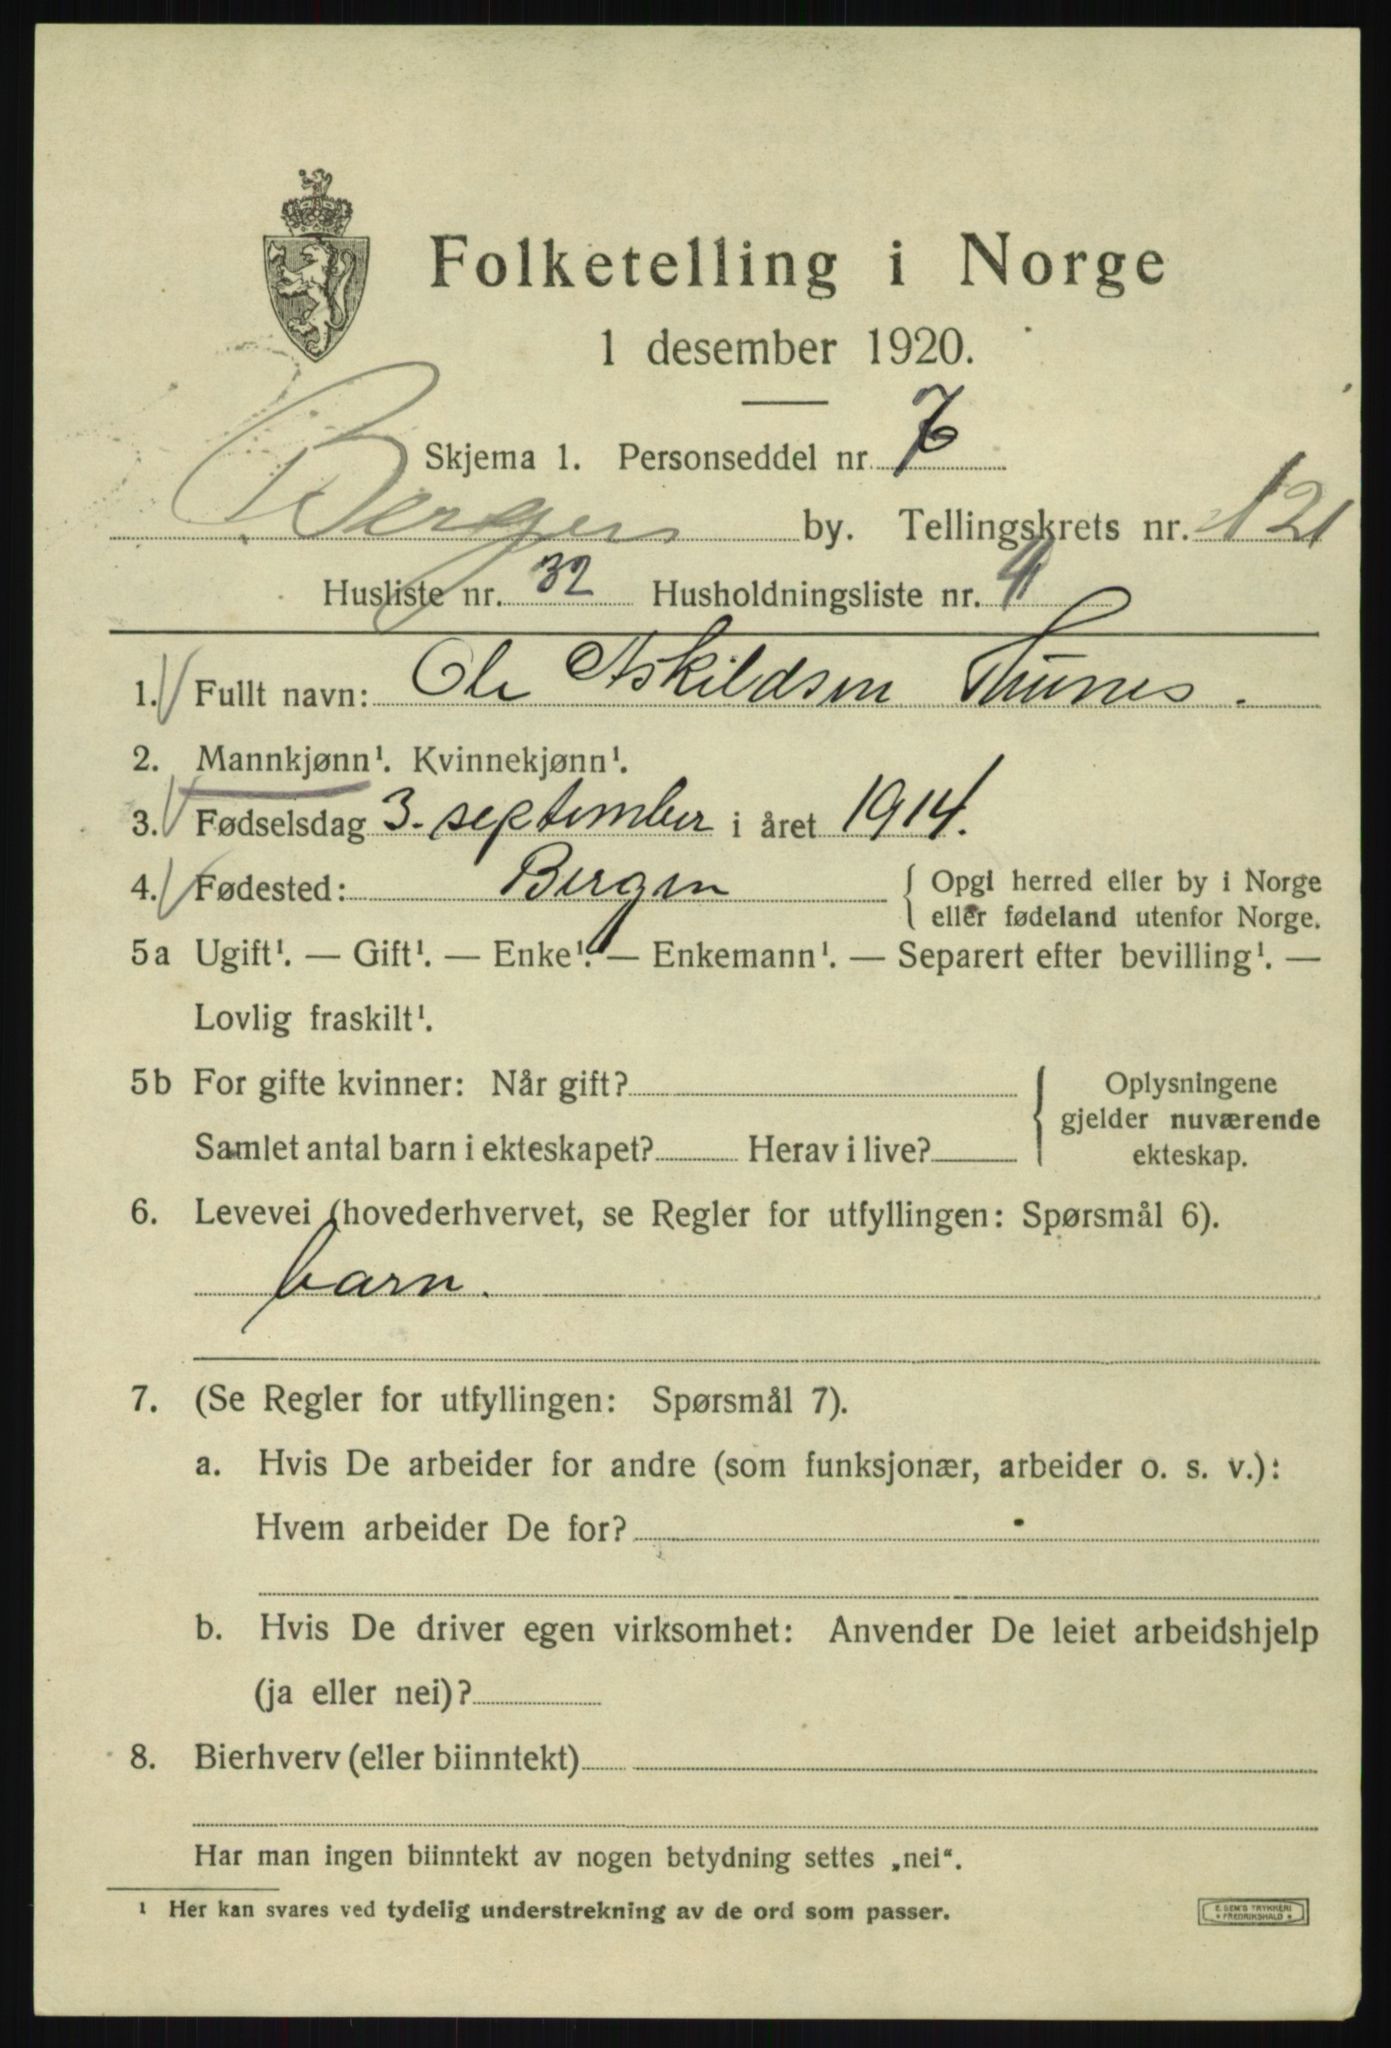 Folketelling i Norge
1 desember 1920.
Skjema 1. Personseddel nr. 7
Bergen by. Tellingskrets nr. 121
Husliste nr. 32 Husholdningsliste nr. 4
1. Fullt navn: Ole Askildsen Thunes.
2. Mannkjønn¹. Kvinnekjønn¹.
3. Fødselsdag 3. september i året 1914.
4. Fødested: Bergen { Opgi herred eller by i Norge
eller fødeland utenfor Norge.
5a Ugift¹. — Gift¹. — Enke¹. — Enkemann¹. — Separert efter bevilling¹. —
Lovlig fraskilt¹.
5b For gifte kvinner: Når gift? { Oplysningene
gjelder nuværende
Samlet antal barn i ekteskapet? Herav i live? ekteskap.
6. Levevei (hovederhvervet, se Regler for utfyllingen: Spørsmål 6).
barn.
7. (Se Regler for utfyllingen: Spørsmål 7).
a. Hvis De arbeider for andre (som funksjonær, arbeider o. s. v.):
Hvem arbeider De for?
b. Hvis De driver egen virksomhet: Anvender De leiet arbeidshjelp
(ja eller nei)?
8. Bierhverv (eller biinntekt)
Har man ingen biinntekt av nogen betydning settes „nei“.
¹ Her kan svares ved tydelig understrekning av de ord som passer.
E. SEM'S TRYKKERI
* FREDRIKSHALD *